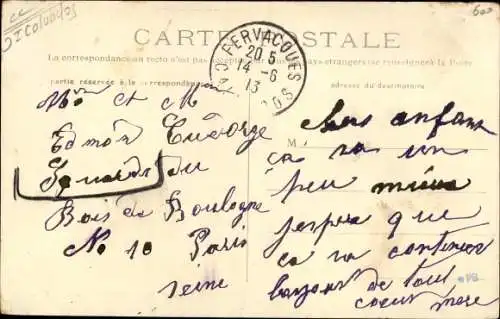 Calvados
600
CARTE POSTALE
La correspondance au recto n'est pas
pays étrangers se renseigner à la Poste
partie réservée à la correspondance
adresse du destinataire
CLERVACQUES
20 5
14 - 6
13
Mme et M
Edmond George
du
Bois de Boulogne
No 10 Paris
seine
M
chers enfant
ca va un
peu mieux
jespere que
ca va continuer
bonjour de tout
coeur mere